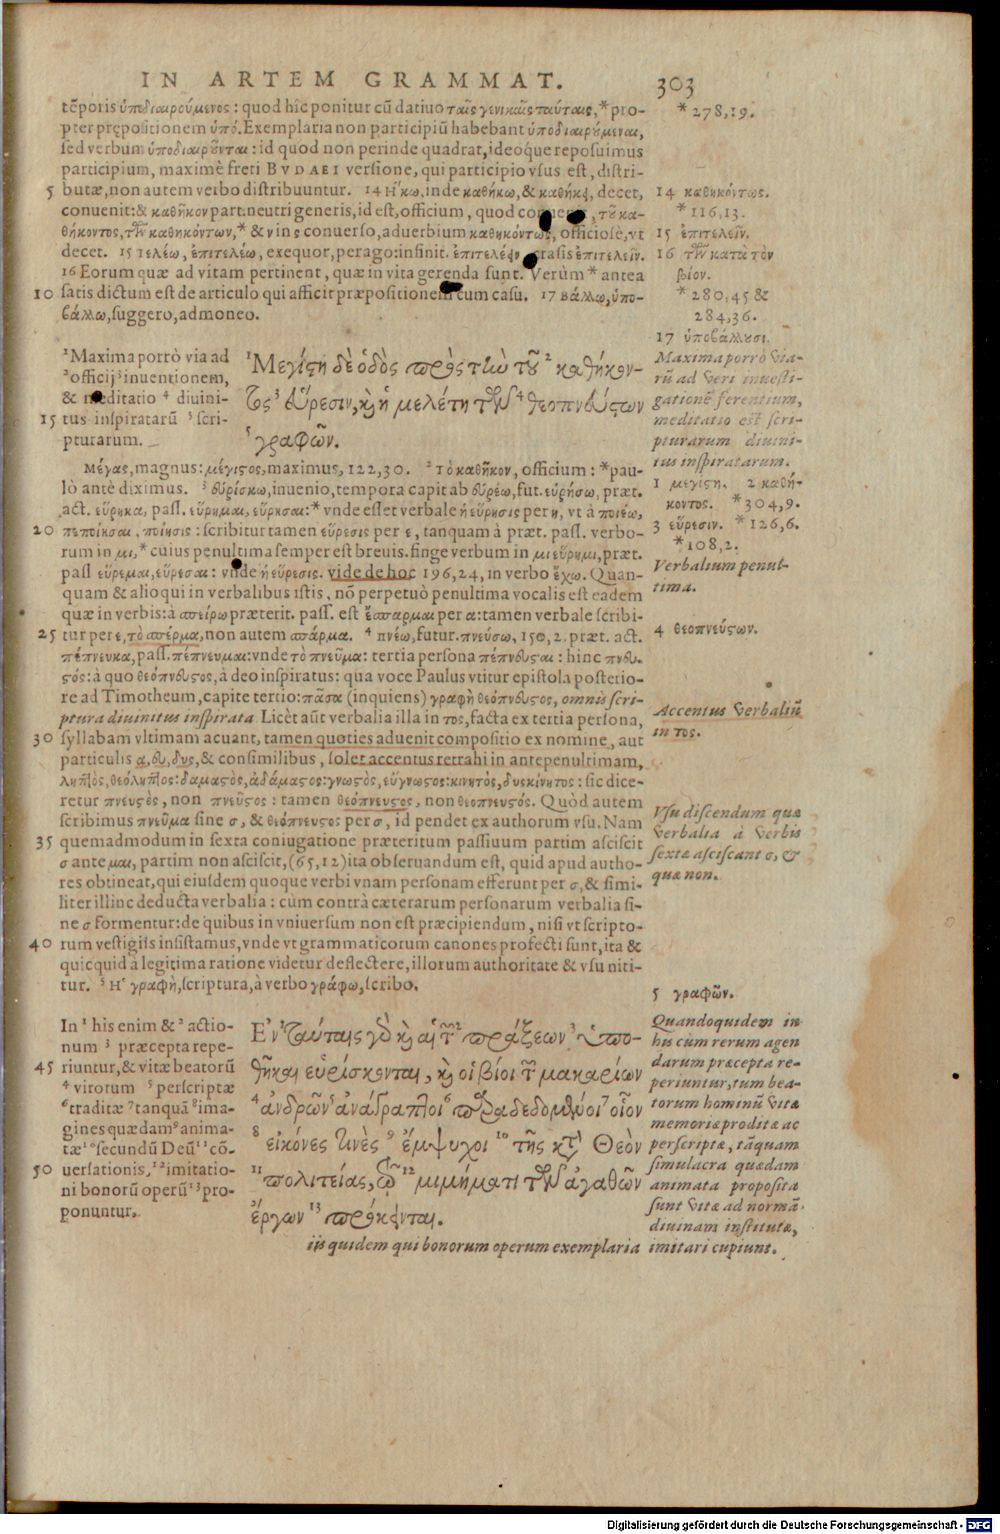 IN ARTEM GRAMMAT. 303
tẽporis ὑποδιαιρούμενος: quod hîc ponitur cũ datiuo ταῖς γενικαῖς ταύταις, * pro-
pter prępositionem ὑπό. Exemplaria non participiũ habebant ὑποδιαιρούμεναι,
sed verbum ὑποδιαιροῦνται: id quod non perinde quadrat, ideoque reposuimus
participium, maximè freti BVDAEI versione, qui participio vsus est, distri-
5 butæ, non autem verbo distribuuntur. 14 Ἥκω, inde καθήκω, & καθήκει, decet,
conuenit: & καθῆκον part. neutri generis, id est, officium, quod conuenit, τοῦ κα-
θήκοντος, τῶν καθηκόντων, * & v in ς conuerso, aduerbium καθηκόντως, officiosè, vt
decet. 15 τελέω, ἐπιτελέω, exequor, perago: infinit. ἐπιτελέειν crasis ἐπιτελεῖν.
16 Eorum quæ ad vitam pertinent, quæ in vita gerenda sunt. Verùm * antea
10 satis dictum est de articulo qui afficit præpositionem cum casu. 17 βάλλω, ὑπο-
βάλλω, suggero, admoneo.
* 278,19.
14 καθηκόντως.
* 116,13.
15 ἐπιτελεῖν.
16 τῶν κατὰ τὸν
βίον.
* 280,45 &
284,36.
17 ὑποβάλλουσι.
1 Maxima porrò via ad
2 officij 3 inuentionem,
& meditatio 4 diuini-
15 tus inspiratarũ 5 scri-
pturarum.
1 Μεγίστη δὲ ὁδὸς πρὸς τὴν τοῦ 2 καθήκον-
τος 3 εὕρεσιν, καὶ ἡ μελέτη τῶν 4 θεοπνεύστων
5 γραφῶν.
Maxima porrò via-
rũ ad veri inuesti-
gationẽ ferentium,
meditatio est scri-
pturarum diuini-
tus inspiratarum.
μέγας, magnus: μέγιστος, maximus, 122,30. 2 τὸ καθῆκον, officium: * pau-
lò antè diximus. 3 εὑρίσκω, inuenio, tempora capit ab εὑρέω, fut. εὑρήσω, præt.
act. εὕρηκα, pass. εὕρημαι, εὕρησαι: * vnde esset verbale ἡ εὕρησις per η, vt à ποιέω,
20 πεποίησαι, ποίησις: scribitur tamen εὕρεσις per ε, tanquam à præt. pass. verbo-
rum in μι, * cuius penultima semper est breuis. finge verbum in μι εὕρημι, præt.
pass εὕρεμαι, εὕρεσαι: vnde ἡ εὕρεσις. vide de hoc 196,24, in verbo ἔχω. Quan-
quam & alioqui in verbalibus istis, nõ perpetuò penultima vocalis est eadem
quæ in verbis: à σπείρω præterit. pass. est ἔσπαρμαι per α: tamen verbale scribi-
25 tur per ε, τὸ σπέρμα, non autem σπάρμα. 4 πνέω, futur. πνεύσω, 150, 2. præt. act.
πέπνευκα, pass. πέπνευμαι: vnde τὸ πνεῦμα: tertia persona πέπνευσται: hinc πνευ-
στός: à quo θεόπνευστος, à deo inspiratus: qua voce Paulus vtitur epistola posterio-
re ad Timotheum, capite tertio: πᾶσα (inquiens) γραφὴ θεόπνευστος, omnis scri-
ptura diuinitus inspirata Licèt aũt verbalia illa in τος, facta ex tertia persona,
30 syllabam vltimam acuant, tamen quoties aduenit compositio ex nomine, aut
particulis α, ευ, δυς, & consimilibus, solet accentus retrahi in antepenultimam,
ληπτὸς, θεόληπτος: δαμαστὸς, ἀδάμαστος: γνωστὸς, εὔγνωστος: κινητὸς, δυσκίνητος: sic dice-
retur πνευστὸς, non πνεῦστος: tamen θεόπνευστος, non θεοπνευστός. Quòd autem
scribimus πνεῦμα sine σ, & θεόπνευστος per σ, id pendet ex authorum vsu. Nam
35 quemadmodum in sexta coniugatione præteritum passiuum partim asciscit
σ ante μαι, partim non asciscit, (65,12) ita obseruandum est, quid apud autho-
res obtineat, qui eiusdem quoque verbi vnam personam efferunt per σ, & simi-
liter illinc deducta verbalia: cum contrà cæterarum personarum verbalia si-
ne σ formentur: de quibus in vniuersum non est præcipiendum, nisi vt scripto-
40 rum vestigiis insistamus, vnde vt grammaticorum canones profecti sunt, ita &
quicquid à legitima ratione videtur deflectere, illorum authoritate & vsu niti-
tur. 5 Ἡ γραφὴ, scriptura, à verbo γράφω, scribo.
1 μεγίστη. 2 καθή-
κοντος. * 304,9.
3 εὕρεσιν. * 126,6.
* 108,2.
Verbalium penul-
tima.
4 θεοπνεύστων.
Accentus verbaliũ
in τος.
Vsu discendum quæ
verbalia à verbis
sextæ asciscant σ, &
quæ non.
5 γραφῶν.
In 1 his enim & 2 actio-
num 3 præcepta repe-
45 riuntur, & vitæ beatorũ
4 virorum 5 perscriptæ
6 traditæ 7 tanquã 8 ima-
gines quædam 9 anima-
tæ 10 secundũ Deũ 11 cõ-
50 uersationis, 12 imitatio-
ni bonorũ operũ 13 pro-
ponuntur.
Ἐν 1 ταύταις γὰρ καὶ αἱ τῶν 2 πράξεων 3 ὑπο-
θῆκαι εὑρίσκονται, καὶ οἱ βίοι τῶν μακαρίων
4 ἀνδρῶν 5 ἀνάγραπτοι 6 παραδεδομένοι 7 οἷον
8 εἰκόνες τινὲς 9 ἔμψυχοι 10 τῆς κατὰ Θεὸν
11 πολιτείας, τῷ 12 μιμήματι τῶν ἀγαθῶν
ἔργων 13 πρόκεινται.
Quandoquidem in
his cum rerum agen
darum præcepta re-
periuntur, tum bea-
torum hominũ vitæ
memoriæ proditæ ac
perscriptæ, tãquam
simulacra quædam
animata proposita
sunt vitæ ad normã
diuinam institutæ,
iis quidem qui bonorum operum exemplaria imitari cupiunt.
Digitalisierung gefördert durch die Deutsche Forschungsgemeinschaft - DFG